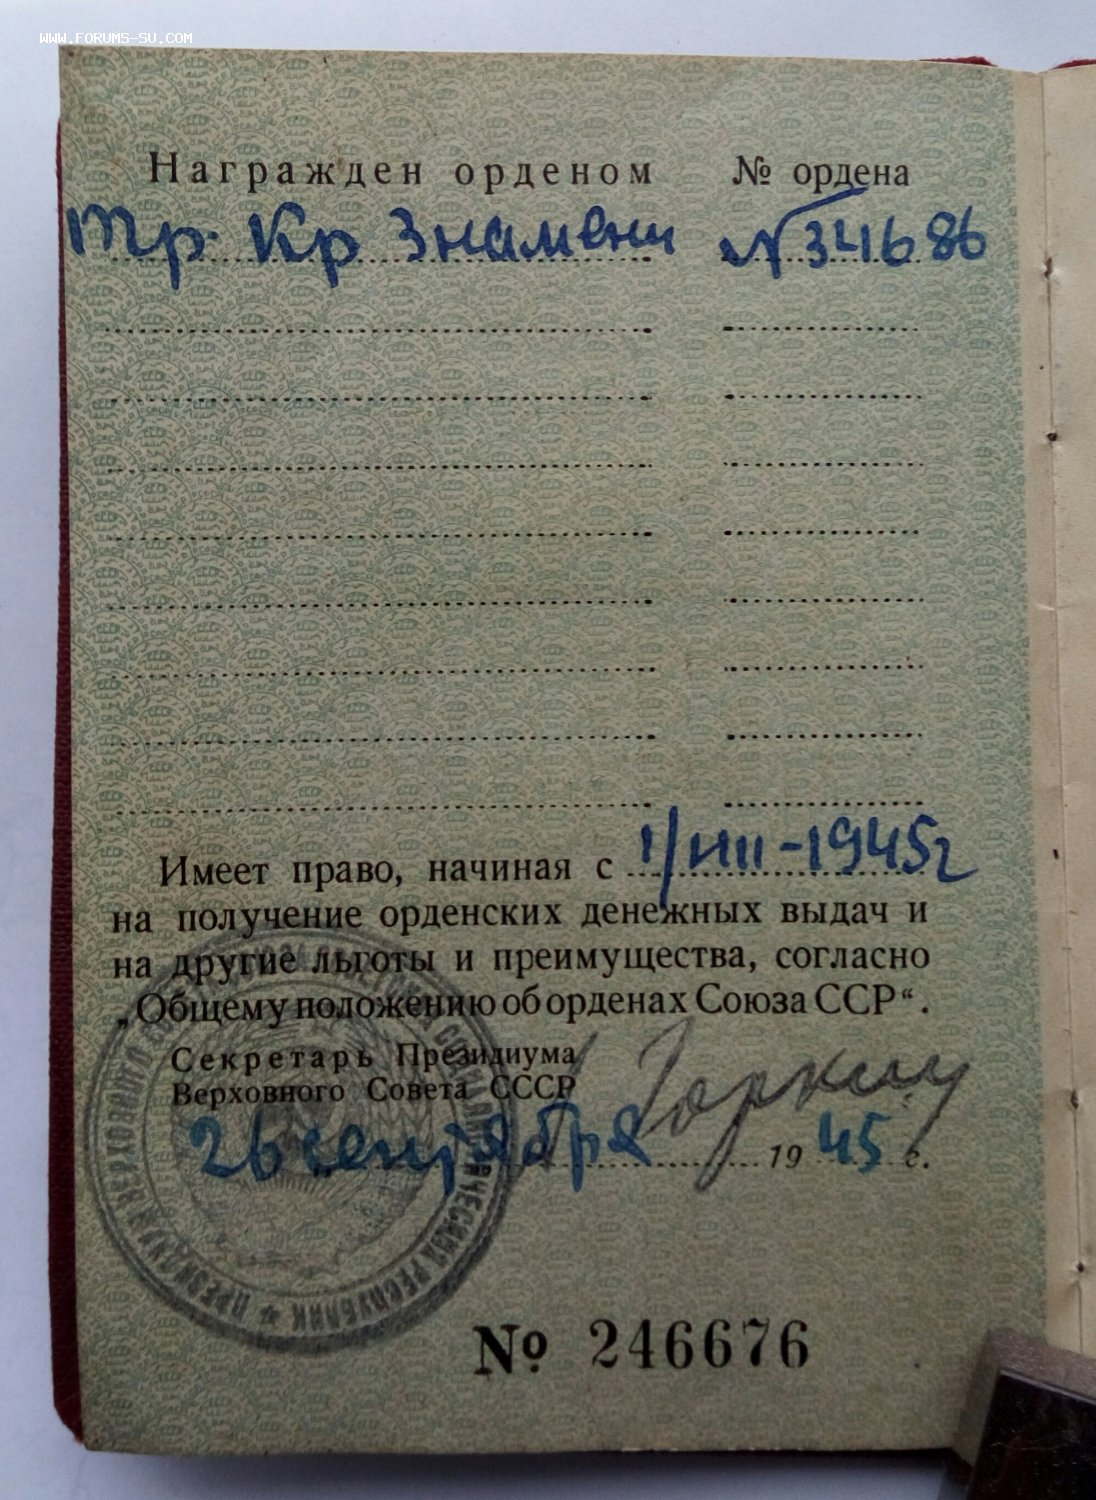 WWW.FORUMS-SU.COM
Награжден орденом № ордена
Тр. Кр Знамени №34686
Имеет право, начиная с 1/VIII-1945г
на получение орденских денежных выдач и
на другие льготы и преимущества, согласно
„Общему положению об орденах Союза ССР“.
Секретарь Президиума
Верховного Совета СССР Горкин
26 сентября 1945 г.
ПРЕЗИДИУМ ВЕРХОВНОГО СОВЕТА СОЮЗА СОВЕТСКИХ СОЦИАЛИСТИЧЕСКИХ РЕСПУБЛИК
№ 246676